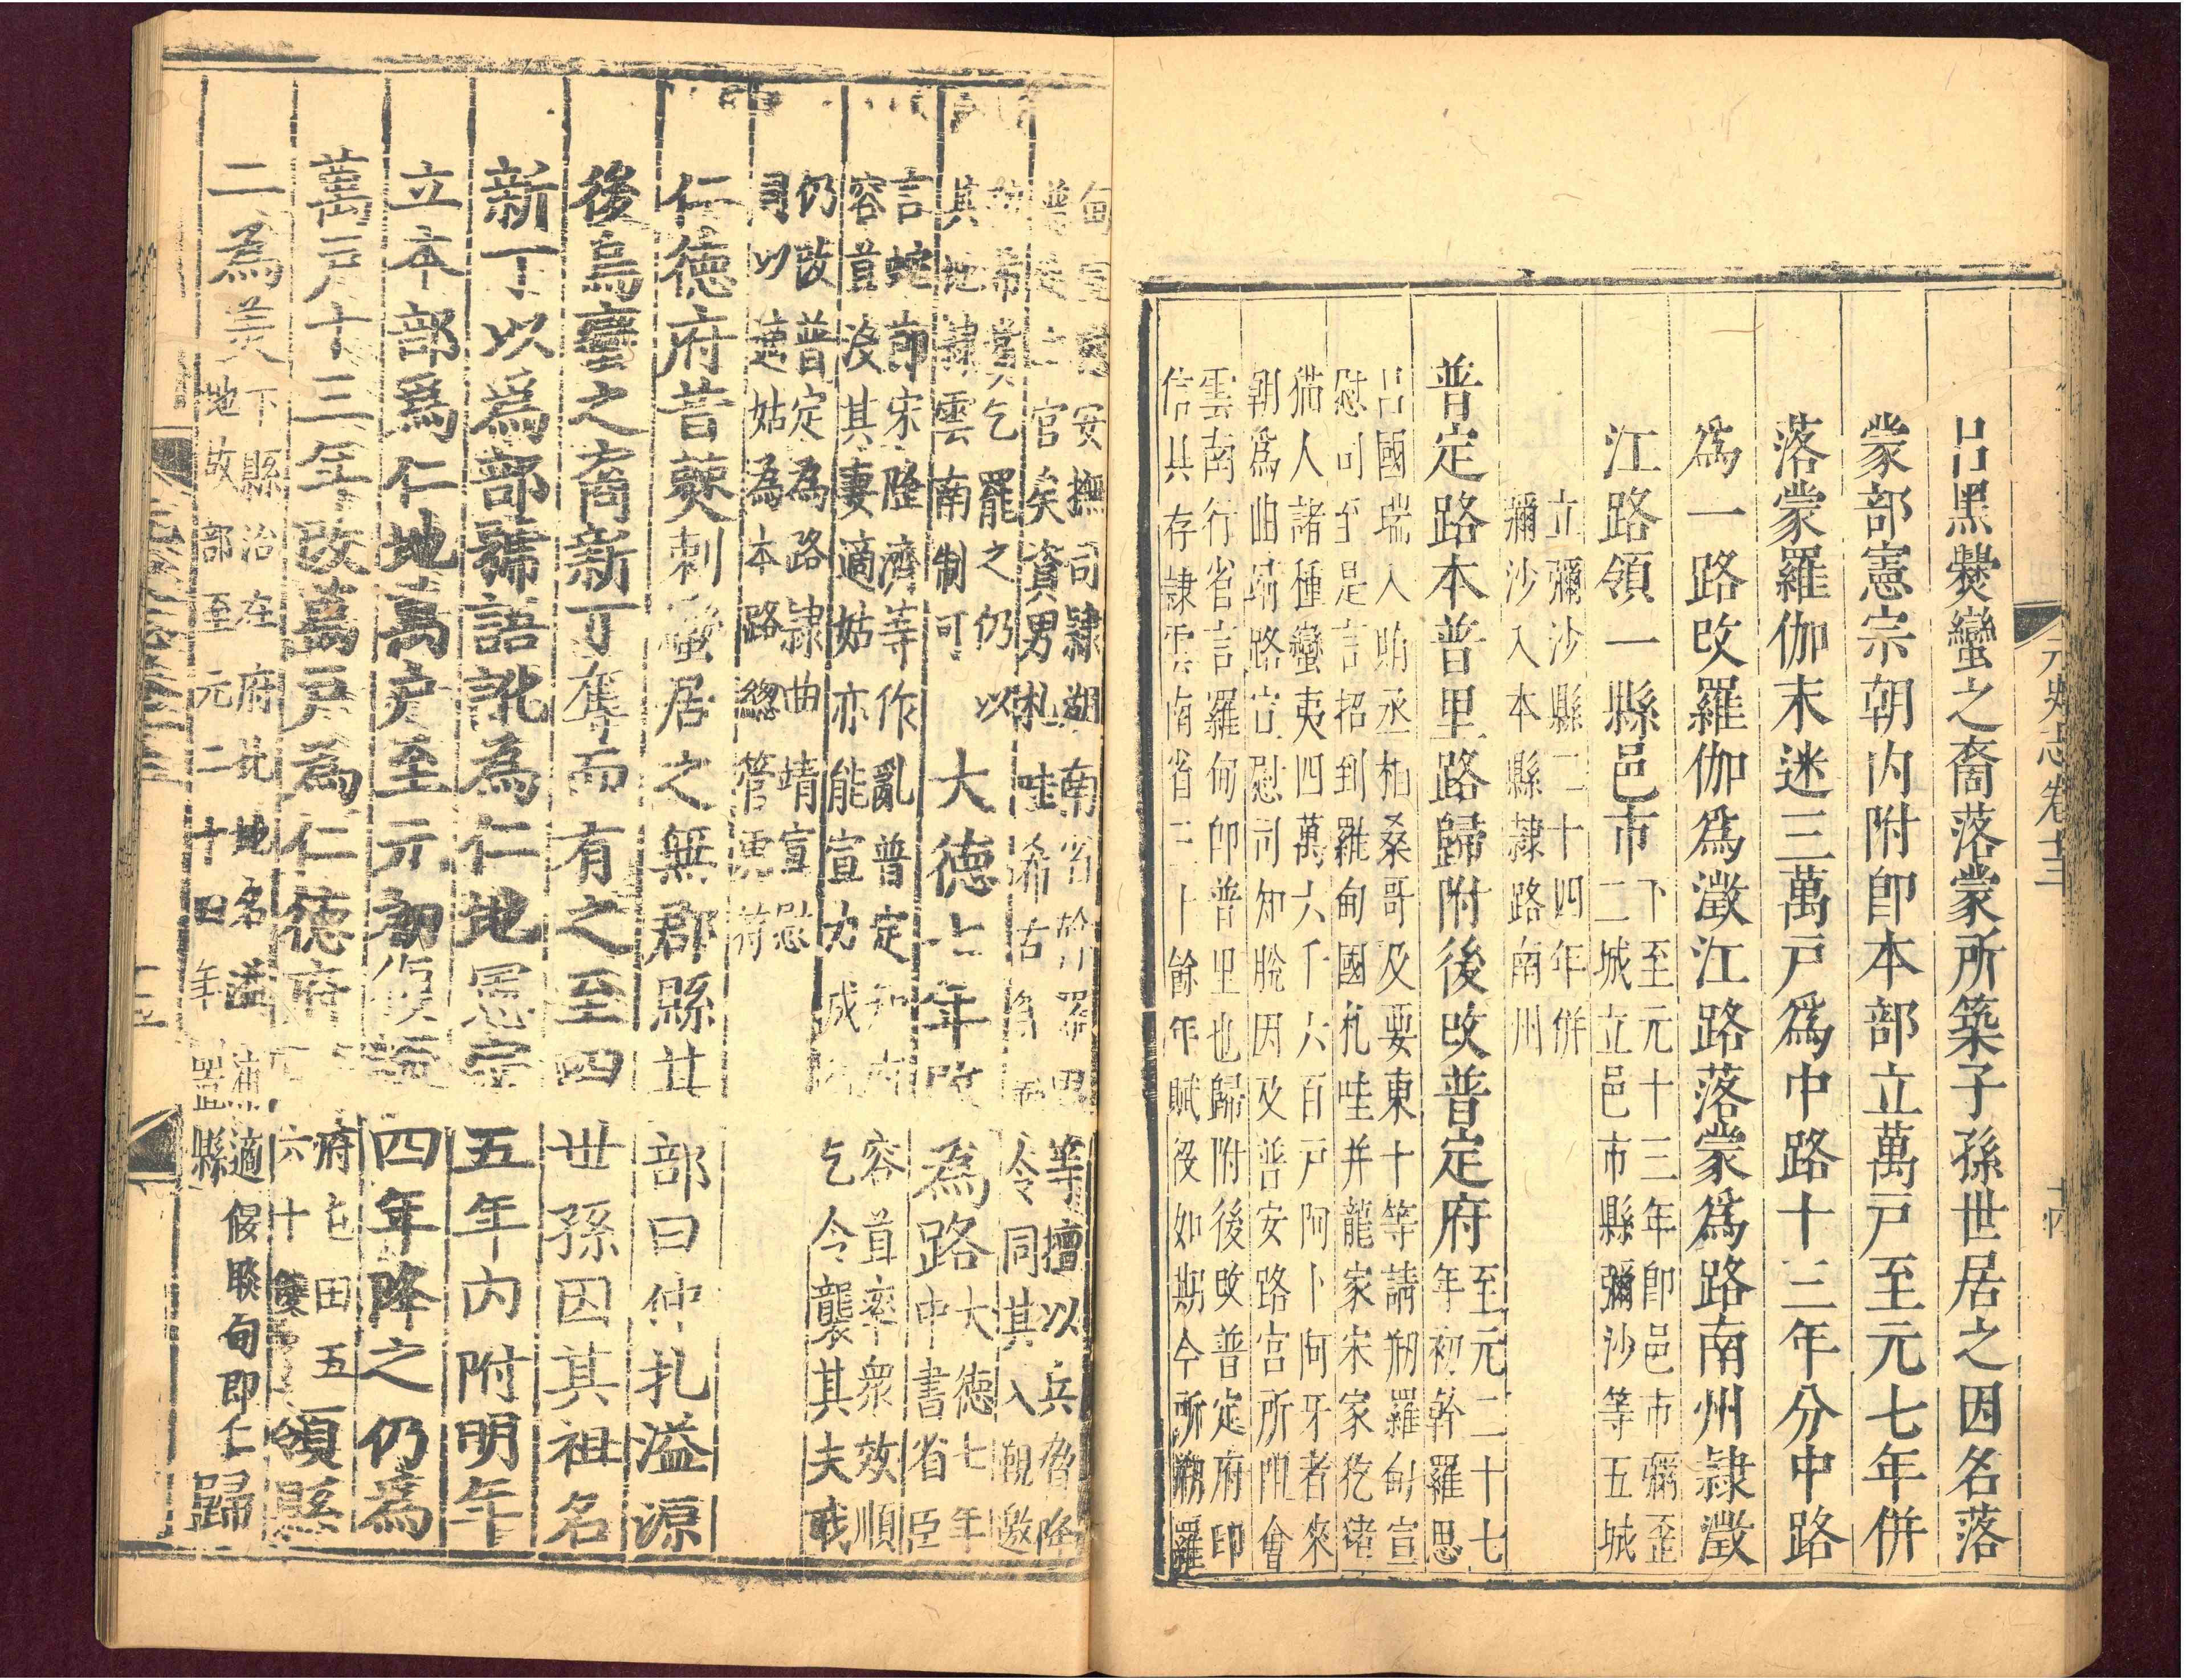 元史志卷十三
十四
呂黑爨蠻之裔落蒙所築子孫世居之因名落
蒙部憲宗朝内附卽本部立萬戸至元七年併
落蒙羅伽末迷三萬戸爲中路十三年分中路
爲一路改羅伽爲澂江路落蒙爲路南州隸澂
江路領一縣邑市
下至元十三年卽邑市彌歪
二城立邑市縣彌沙等五城
立彌沙縣二十四年併
彌沙入本縣隸路南州
普定路本普里路歸附後改普定府
至元二十七
年初斡羅思
呂國瑞入賄丞相桑哥及要束十等請剏羅甸宣
慰司至是言招到羅甸國札哇并龍家宋家犵狫
猫人諸種蠻夷四萬六千六百戸阿卜阿牙者來
朝爲曲靖路宣慰司知脫因及普安路官所阻會
雲南行省言羅甸卽普里也歸附後改普定府印
信具存隸雲南省三十餘年賦役如期今所剏羅
甸宣慰安撫司隸湖南省斡羅思等擅以兵脅降
普定土官矣資男札哇希古等令同其入覲邀
功希賞乞罷之仍以
其地隸雲南制可
大德七年改爲路
大德七年
中書省臣
言蛇節宋隆濟等作亂普定知府容苴率衆效順
容苴没其妻適姑亦能宣力戎行乞令襲其夫職
仍改普定爲路隸曲靖宣慰
司以適姑為本路緫管虎符
仁德府昔㸑剌蠻居之無郡縣其部曰仲扎溢源
後烏蠻之裔新丁奪而有之至四世孫因其祖名
新丁以爲部號語訛為仁地憲宗五年内附明年
立本部爲仁地萬户至元初復叛四年降之仍爲
萬戸十三年改萬戸為仁德府
府屯田五
六十雙
領縣
二爲美
下縣治在府北地名溢浦適侶睒甸即仁
地故部至元二十四年置縣
歸
十五